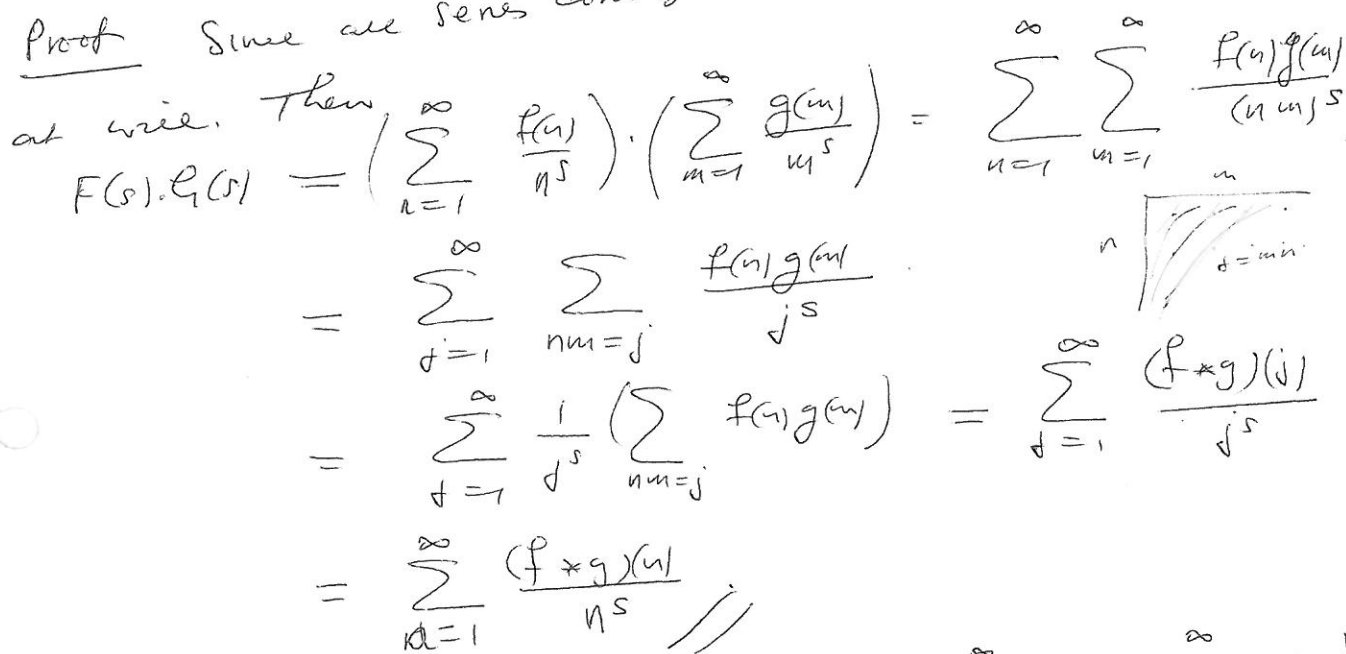 Proof Since all series
at will. Then
F(s).G(s) = (∑_{n=1}^{∞} f(n)/n^s).(∑_{m=1}^{∞} g(m)/m^s) = ∑_{n=1}^{∞} ∑_{m=1}^{∞} f(n)g(m)/(nm)^s
m
n
j=mn
= ∑_{j=1}^{∞} ∑_{nm=j} f(n)g(m)/j^s
= ∑_{j=1}^{∞} 1/j^s (∑_{nm=j} f(n)g(m)) = ∑_{j=1}^{∞} (f*g)(j)/j^s
= ∑_{n=1}^{∞} (f*g)(n)/n^s //
∞ ∞